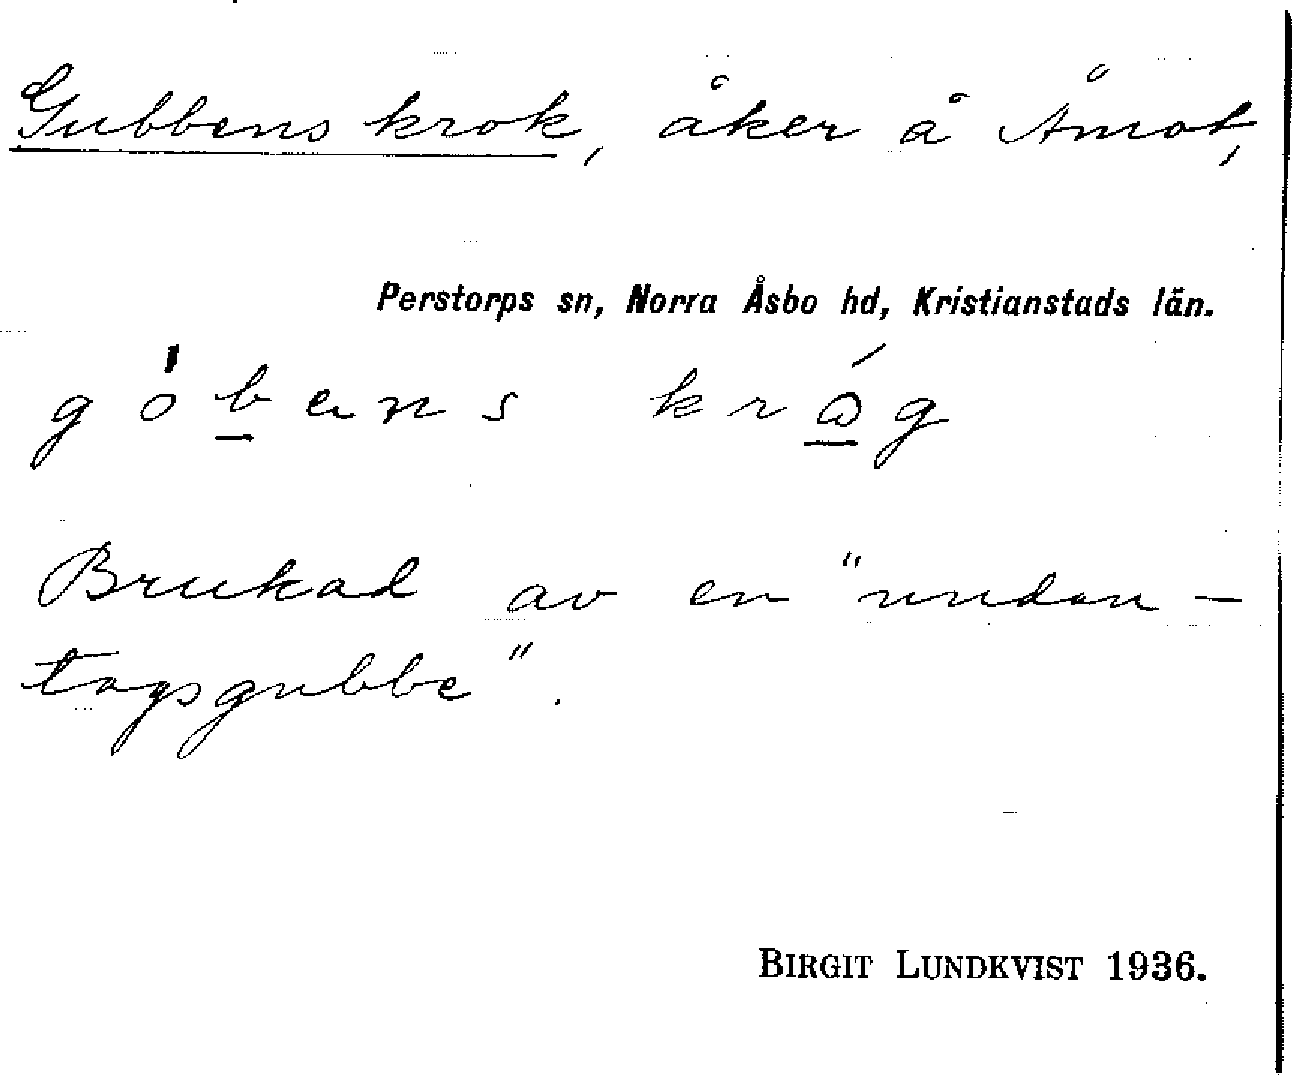 Gubbens krok, åker å Åmot,
Perstorps sn, Norra Åsbo hd, Kristianstads län.
góbens króg
Brukad av en "undan-
tagsgubbe".
BIRGIT LUNDKVIST 1936.